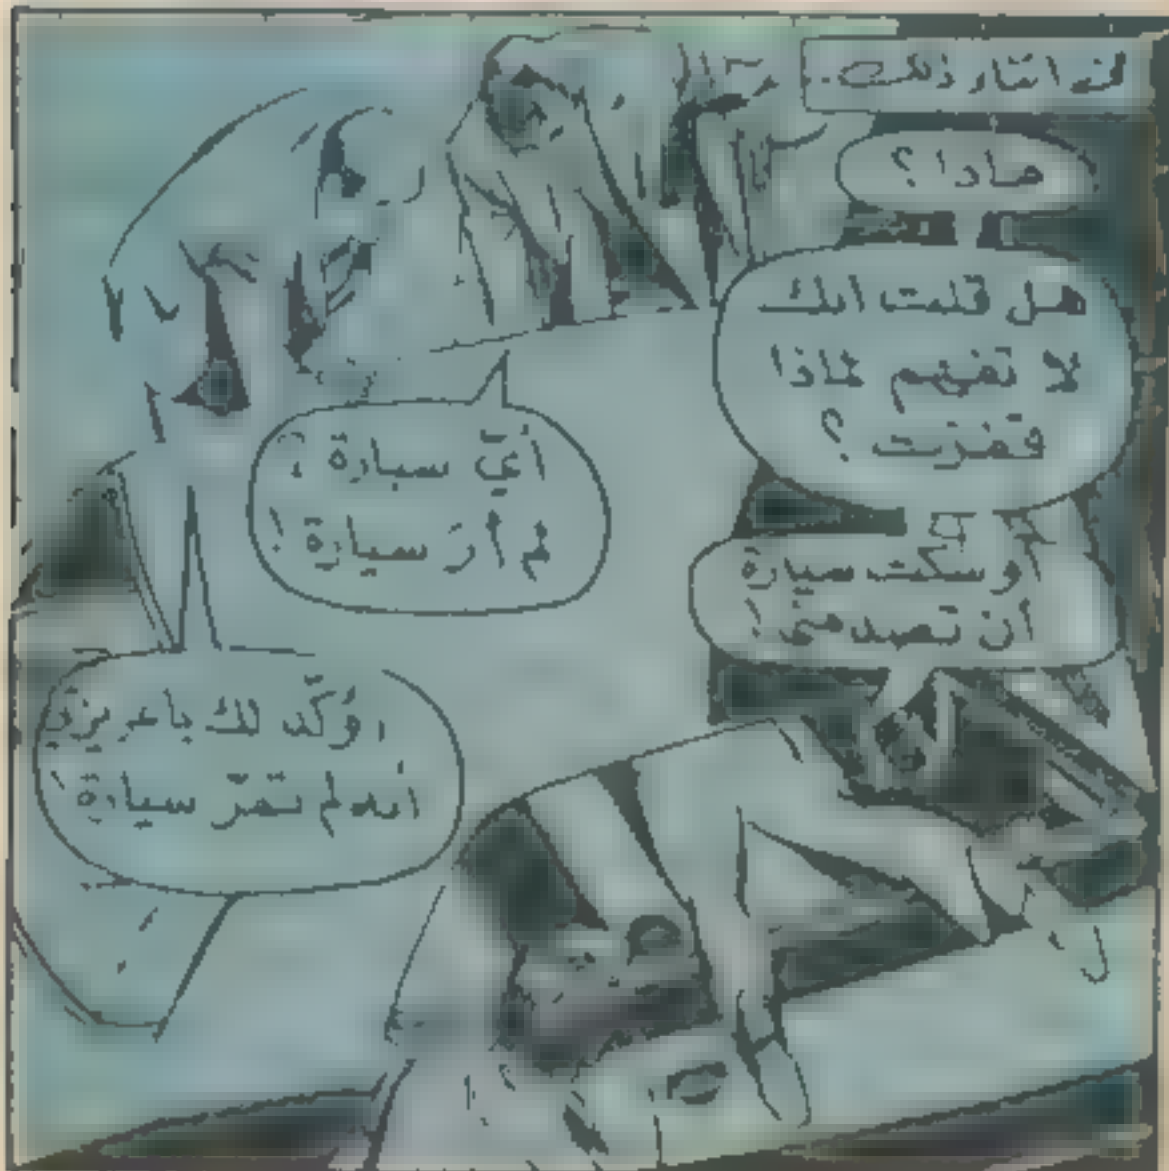 ماذا ؟
هل قلت انك
لا تفهم لماذا
قفزت ؟
أوشكت سيارة
أن تصدمني !
أيّ سيارة ؟
لم أرَ سيارة !
أؤكّد لك ياعزيزتي
انه لم تمرّ سيارة !